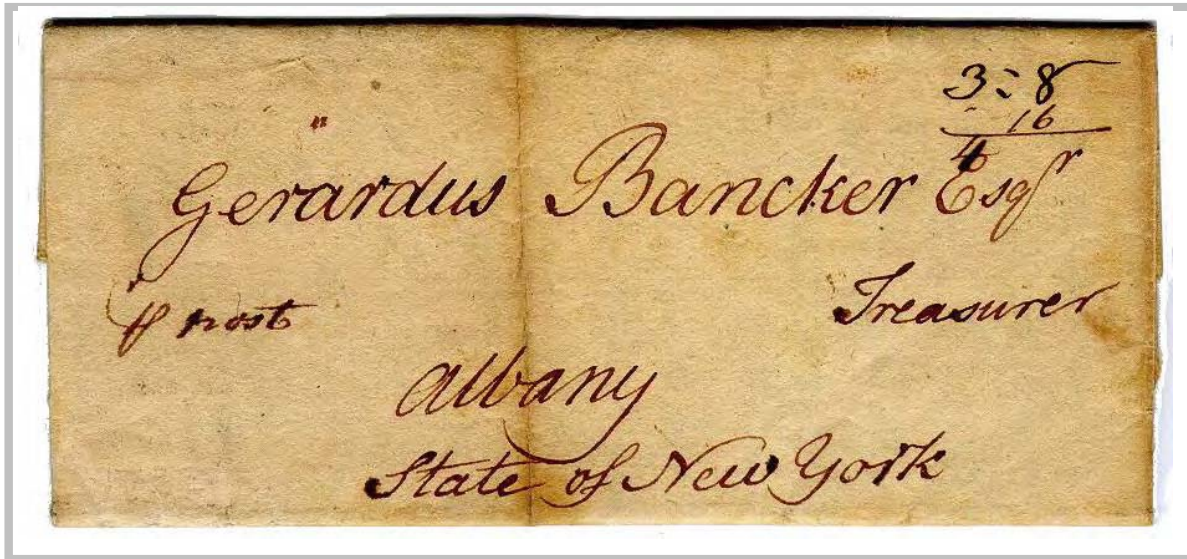 3 : 8
16
4
Gerardus Bancker Esqr
Treasurer
post
Albany
State of New York